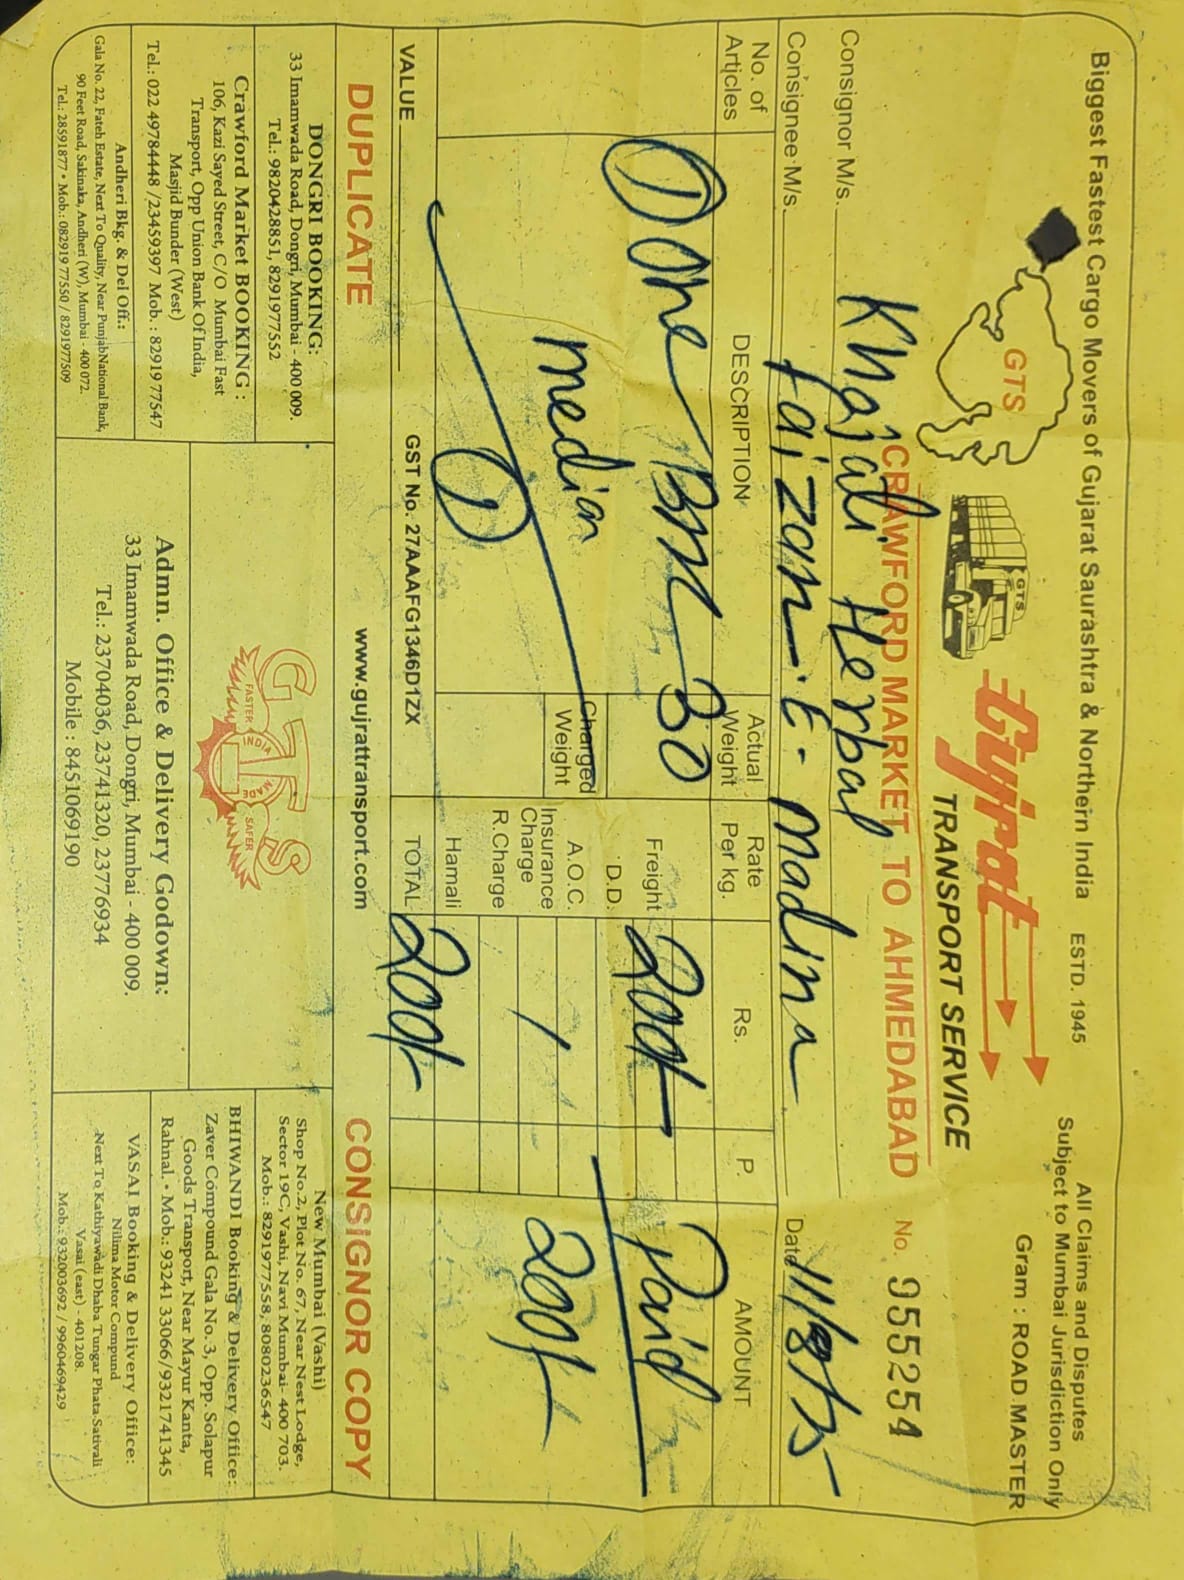 Biggest Fastest Cargo Movers of Gujarat Saurashtra & Northern India ESTD. 1945
All Claims and Disputes
Subject to Mumbai Jurisdiction Only
Gram : ROAD MASTER
GTS
GTS
Gujrat
TRANSPORT SERVICE
CRAWFORD MARKET TO AHMEDABAD No. 955254
Consignor M/s. Khajali Herbal
Consignee M/s. Faizan-E-Madina Date
No. of Articles DESCRIPTION Actual Weight Rate Per kg. Rs. P. AMOUNT
① One 30 Freight 200/- Paid
D.D.
median Charged Weight A.O.C. 200/-
Insurance Charge
R.Charge
① Hamali
TOTAL 200/-
VALUE GST No. 27AAAFG1346D1ZX
DUPLICATE www.gujrattransport.com CONSIGNOR COPY
DONGRI BOOKING:
33 Imamwada Road, Dongri, Mumbai - 400 009.
Tel.: 9820428851, 8291977552
Crawford Market BOOKING :
106, Kazi Sayed Street, C/O Mumbai Fast
Transport, Opp Union Bank Of India,
Masjid Bunder (West)
Tel.: 022 49784448 /23459397 Mob. : 82919 77547
Andheri Bkg. & Del Off.:
Gala No. 22, Fateh Estate, Next To Quality, Near PunjabNational Bank,
90 Feet Road, Sakinaka, Andheri (W), Mumbai - 400 072.
Tel.: 28591877 • Mob.: 082919 77550 / 8291977509
GTS
FASTER INDIA MADE SAFER
Admn. Office & Delivery Godown:
33 Imamwada Road, Dongri, Mumbai - 400 009.
Tel.: 23704036, 23741320, 23776934
Mobile : 8451069190
New Mumbai (Vashi)
Shop No.2, Plot No. 67, Near Nest Lodge,
Sector 19C, Vashi, Navi Mumbai- 400 703.
Mob.: 8291977558, 8080236547
BHIWANDI Booking & Delivery Office:
Zaver Compound Gala No. 3, Opp. Solapur
Goods Transport, Near Mayur Kanta,
Rahnal. • Mob.: 93241 33066/9321741345
VASAI Booking & Delivery Office:
Nilima Motor Compund
Next To Kathiyawadi Dhaba Tungar Phata Sativali
Vasai (east) - 401208.
Mob.: 932003692 / 9960469429